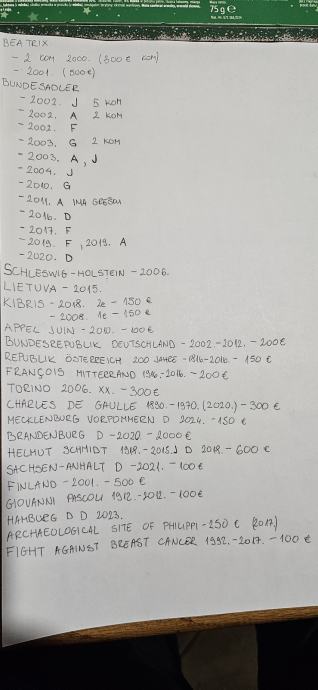 75g e
BEATRIX
- 2 KOM 2000. (800 € KOM)
- 2001. (500€)
BUNDESADLER
- 2002. J 5 KOM
- 2002. A 2 KOM
- 2002. F
- 2003. G 2 KOM
- 2003. A, J
- 2004. J
- 2010. G
- 2011. A IMA GREŠKU
- 2016. D
- 2017. F
- 2019. F, 2019. A
- 2020. D
SCHLESWIG-HOLSTEIN - 2006.
LIETUVA - 2015.
KIBRIS - 2018. 2e - 150 €
- 2008. 1e - 150 €
APPEL JUIN - 2010. - 100€
BUNDESREPUBLIK DEUTSCHLAND - 2002.-2012. - 200€
REPUBLIK ÖSTERREICH 200 JAHRE - 1816-2016. - 150 €
FRANÇOIS MITTERRAND 1916.-2016. - 200€
TORINO 2006. XX. - 300€
CHARLES DE GAULLE 1890.-1970. (2020.) - 300 €
MECKLENBURG VORPOMMERN D 2024. - 150 €
BRANDENBURG D - 2020. - 2000 €
HELMUT SCHMIDT 1918.-2015. J D 2018. - 600 €
SACHSEN-ANHALT D - 2021. - 100€
FINLAND - 2001. - 500 €
GIOVANNI PASCOLI 1912.-2012. - 100€
HAMBURG D D 2023.
ARCHAEOLOGICAL SITE OF PHILIPPI - 250 € (2017)
FIGHT AGAINST BREAST CANCER 1992.-2017. - 100 €